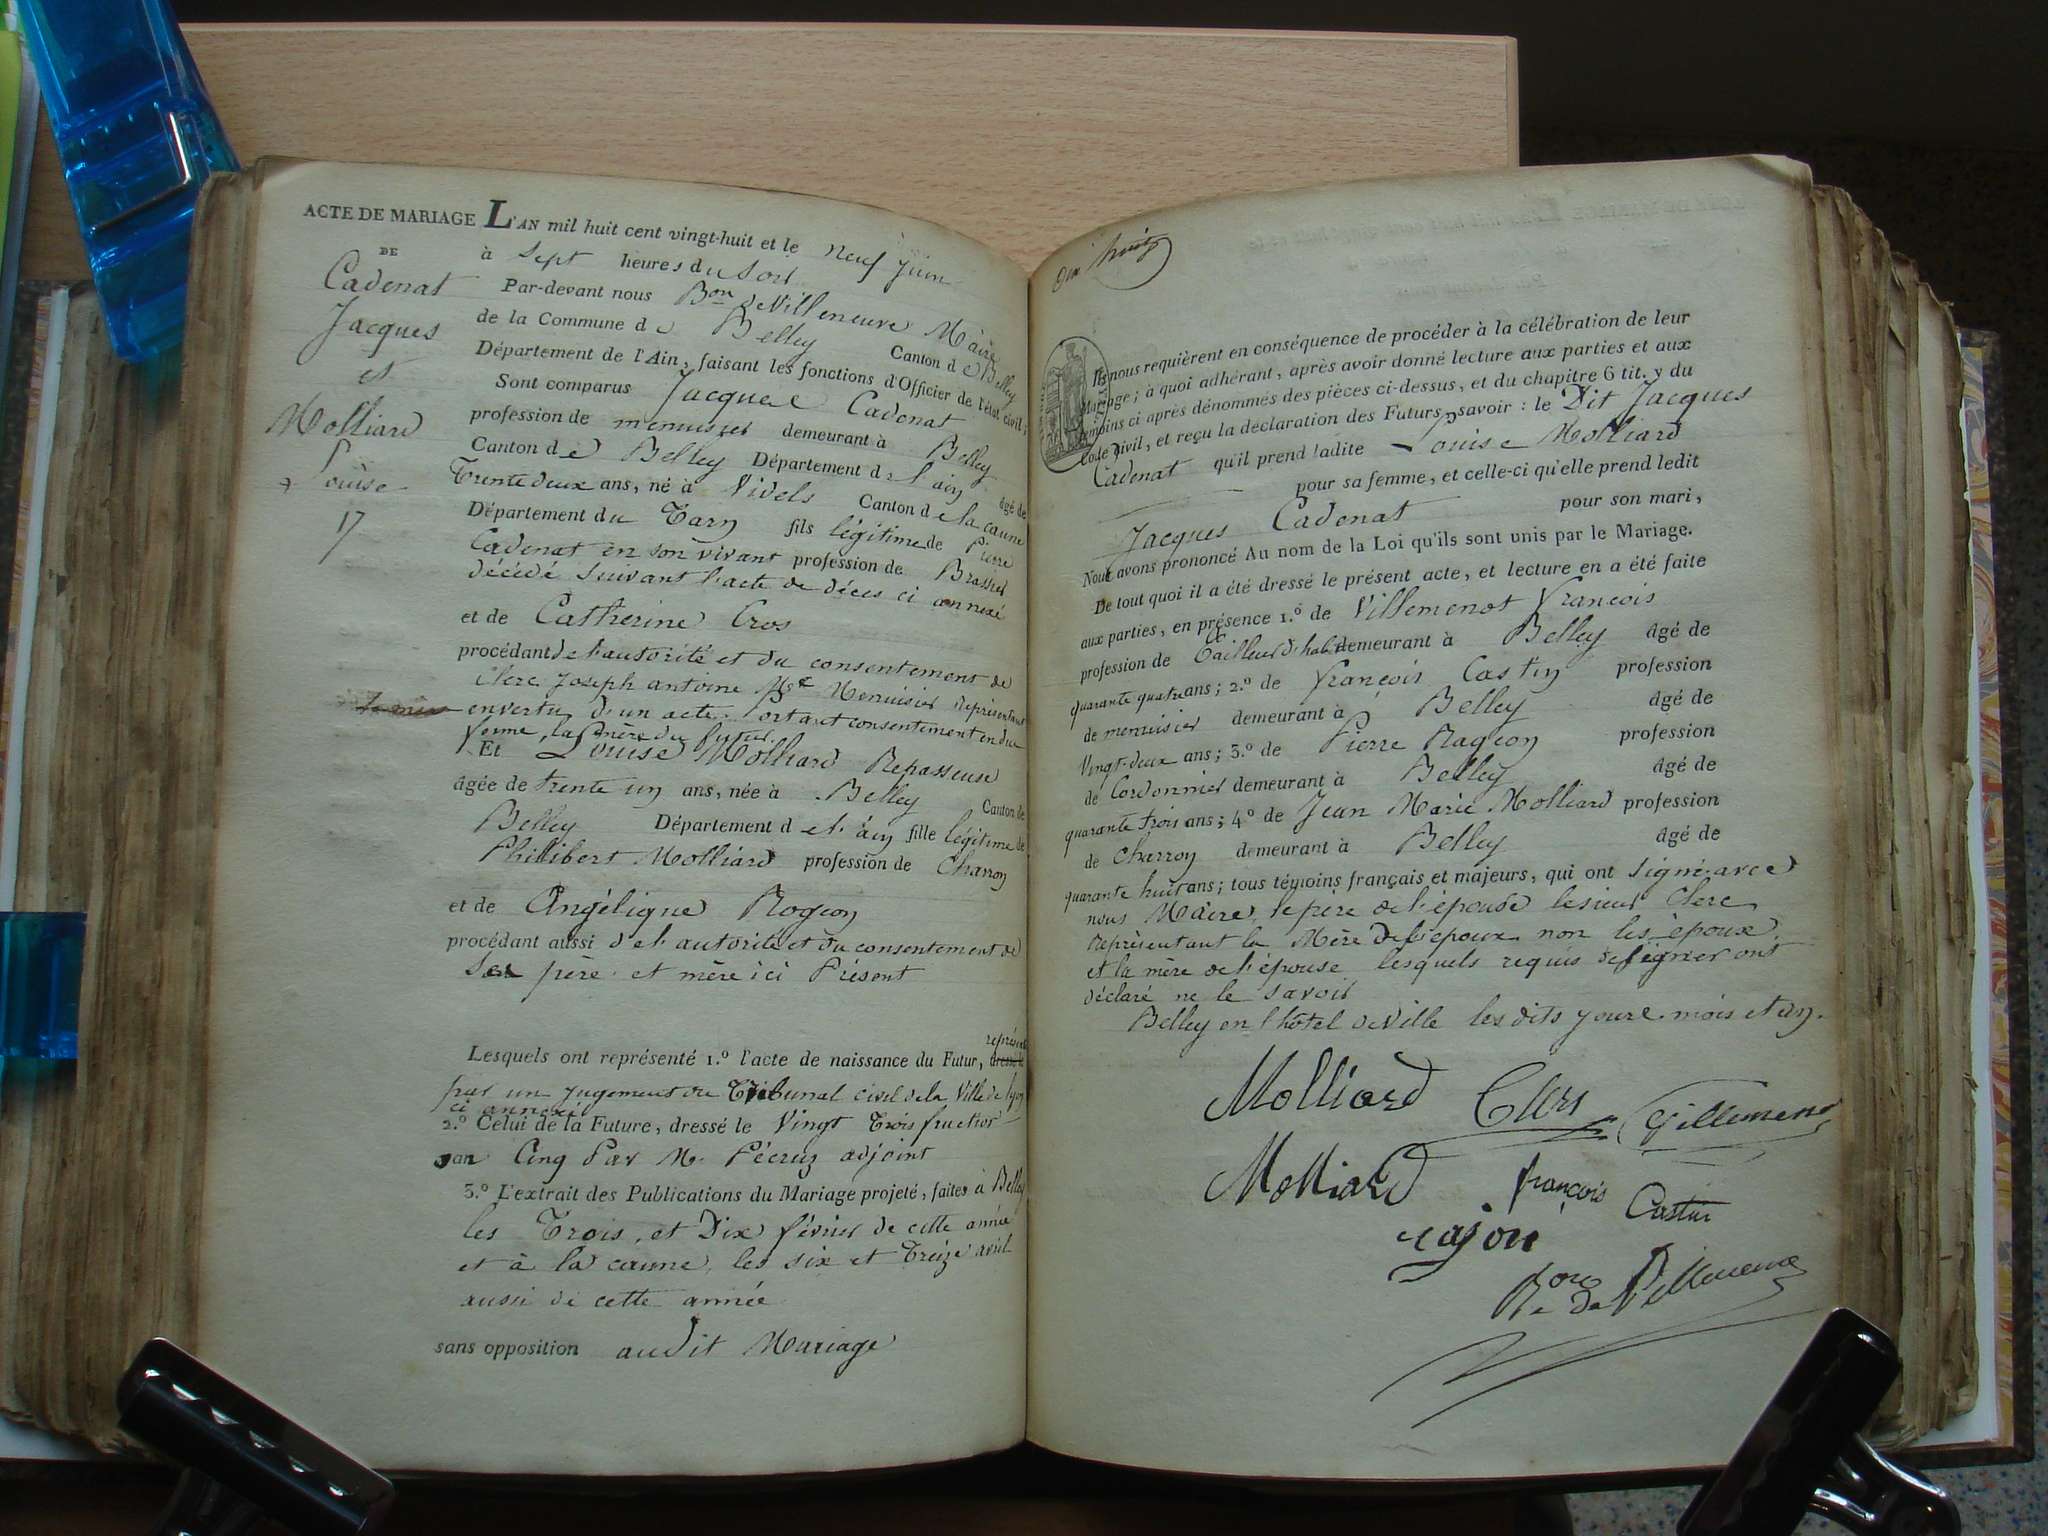 ACTE DE MARIAGE
DE
Cadenat
Jacques
et
Molliard
Louise
17
L'AN mil huit cent vingt-huit et le neuf juin
à Sept heures du Soir
Par-devant nous Bon de Villeneuve Maire
de la Commune de Belley Canton de Belley
Département de l'Ain, faisant les fonctions d'Officier de l'état civil;
Sont comparus Jacques Cadenat
profession de menuisier demeurant à Belley
Canton de Belley Département de l'ain âgé de
Trente deux ans, né à Videls Canton de la caune
Département du Tarn fils légitime de Pierre
Cadenat en son vivant profession de Brassier
décédé suivant l'acte de décès ci annexé
et de Catherine Cros
procédant de l'autorité et du consentement de
Clerc Joseph antoine Md Menuisier Représentant
en vertu d'un acte Portant consentement en due
forme, la mère du futur
Et Louise Molliard Repasseuse
âgée de trente un ans, née à Belley Canton de
Belley Département de l'ain fille légitime de
Phillibert Molliard profession de Charron
et de Angélique Rogeon
procédant aussi de l'autorité et du consentement de
Ses père et mère ici Présent
Lesquels ont représenté 1.º l'acte de naissance du Futur, représenté
par un Jugement du Tribunal civil de la Ville de Lyon
ci annexé
2.º Celui de la Future, dressé le Vingt Trois fructidor
an Cinq Par Mr Pécruz adjoint
3.º L'extrait des Publications du Mariage projeté, faites à Belley
les Trois, et Dix février de cette année
et à la caune, les six et Treize avril
aussi de cette année
sans opposition audit Mariage
dix huit
Ils nous requièrent en conséquence de procéder à la célébration de leur
Mariage; à quoi adhérant, après avoir donné lecture aux parties et aux
témoins ci après dénommés des pièces ci-dessus, et du chapitre 6 tit. y du
Code civil, et reçu la déclaration des Futurs, savoir: le Dit Jacques
Cadenat qu'il prend ladite Louise Molliard
pour sa femme, et celle-ci qu'elle prend ledit
Jacques Cadenat pour son mari,
Nous avons prononcé Au nom de la Loi qu'ils sont unis par le Mariage.
De tout quoi il a été dressé le présent acte, et lecture en a été faite
aux parties, en présence 1.º de Villemenot François
profession de Tailleur d'habit demeurant à Belley âgé de
quarante quatre ans; 2.º de françois Castin profession
de menuisier demeurant à Belley âgé de
Vingt-deux ans; 3.º de Pierre Rageon profession
de Cordonnier demeurant à Belley âgé de
quarante trois ans; 4º de Jean Marie Molliard profession
de Charron demeurant à Belley âgé de
quarante huit ans; tous témoins français et majeurs, qui ont signé avec
nous Maire, le père de l'épouse le sieur Clerc
Représentant la Mère de l'époux non les époux
et la mère de l'épouse lesquels requis de signer ont
déclaré ne le savoir
Belley en l'hôtel de Ville les dits jour mois et an.
Molliard Clerc Villemeno
Molliard françois Castin
rajon
Bon de Villeneuve